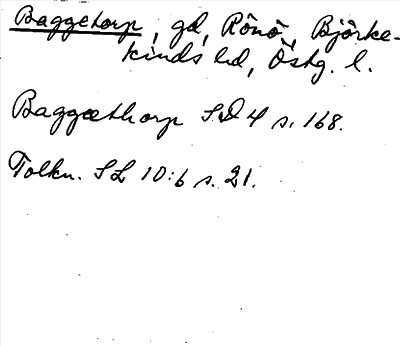 Baggetorp, gd, Rönö, Björke-
kinds hd, Östg. l.
Baggæthorp SD 4 s. 168.
Tolkn. SL 10:6 s. 21.